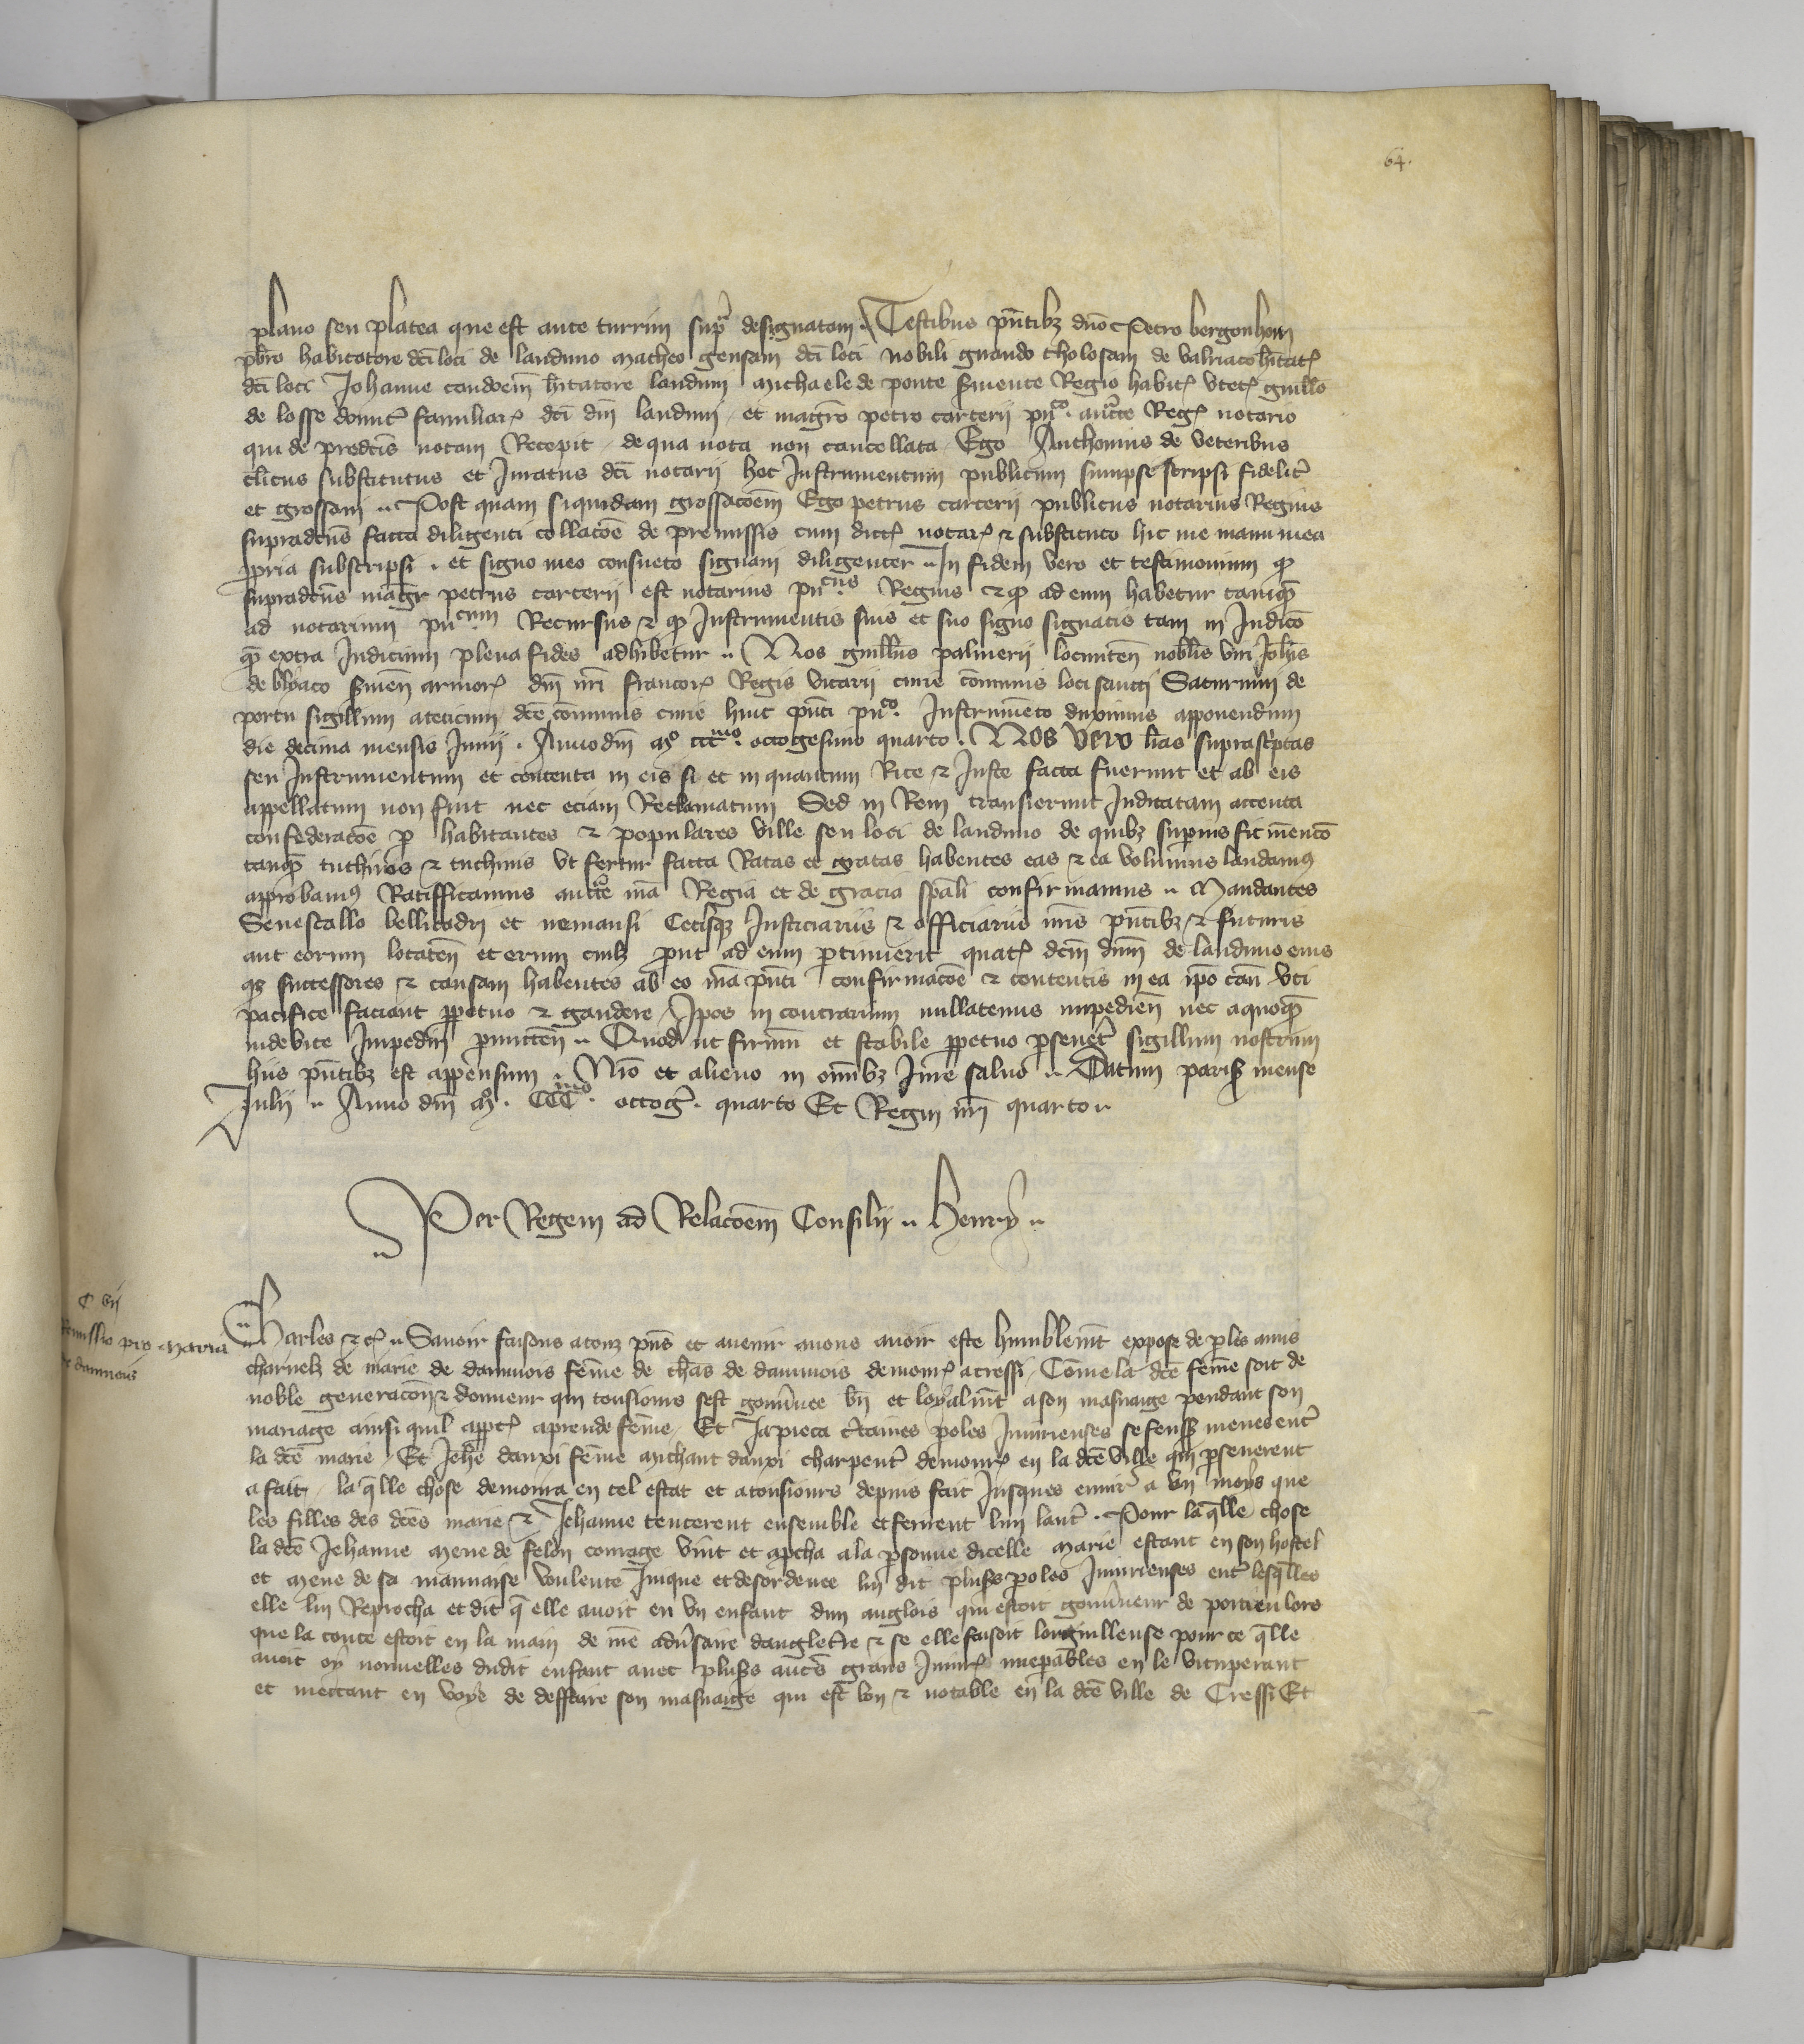 64.
plano seu platea que est ante turrim supra designatam. Testibus pntibz dno Petro bergonhom
pbro habitatore dci loci de landuno Matheo gensam dci loci nobili guando tholosam de valriaco hitatr
dci loci Johanne condoem hitatore landuni Michaele de ponte Regio habitr guillo
de losse domicr familiar dci dni landuni et magro petro carterii puco. aucte Regr notario
qui de predcis notam Recepit de qua nota non cancellata Ego Anthonius de veteribus
clicus substitutus et Juratus dci notarii hoc Instrumentum publicum sumpse scripsi fidelitr
et grossam Post quam siquidam grossacoem Ego petrus carterii publicus notarius Regius
supradcus facta diligenti collacoe de premissis cum dictr notar & substituto hic me manu mea
ppria subscripsi. et signo meo consueto signavi diligenter In fidem vero et testimonium qp
supradcus magr petrus carterii est notarius pucus Regius & qp ad eum habetur tanqp
ad notarium pucum Recursus & qp Instrumentis suis et suo signo signatis tam in Judico
qp extra Judicium plena fides adhibetur Nos guillus palmerii locumten noblis viri Johis
de blyaco armor dni nri francor Regis vicarii curie comunis loci sancti Saturnini de
portu sigillum dce comunis curie huic pnti puco. Instrumeto duximus apponendum
die decima mensis Junii. Anno dni Mo cccmo. octogesimo quarto. Nos vero lras suprascptas
seu Instrumentum et contenta in eis si et in quantum Rite & Juste facta fuerunt et ab eis
appellatum non fuit nec eciam Reclamatum Sed in Rem transierunt Judicatam attenta
confederacoe p habitantes & populares ville seu loci de landuno de quibz superius fit mencio
tanqp tuchinos & tuchinis vt fertur facta Ratas et gratas habentes eas & ea volumus laudamus
approbamus Ratifficamus aucte nra Regia et de gracia spali confirmamus Mandantes
Senescallo bellicadri et nemausi Cetisqz Justiciariis & officiariis nris pntibz & futuris
aut eorum locaten et eorum cuilz put ad eum ptinuerit quatr dcm dnm de landuno eius
qz successores & causam habentes ab eo nra pnti confirmacoe & contentis in ea ipo vti
pacifice faciant ppetuo & gaudere Ipos in contrarium nullatenus impedien nec a quoqp
indebite Impediri pmitten Quod ut firmu et stabile ppetuo pseueret sigillum nostrum
hiis pntibz est appensum. Nro et alieno in omibz Jure saluo Datum paris mense
Julii Anno dni Mo. CCCmo. octogr. quarto Et Regni nri quarto
Per Regem ad Relacoem Consilii Henry
C vij
Remissio pro Maria
de dannois
Charles & cr Sauoir faisons a touz pns et auenir auons auoir este humblemt expose de p les amis
charnelz de marie de dannois feme de chas de dannois demour a cressi. Come la dce feme soit de
noble generacon & donneur qui tousiours sest gouuernee bn et loyalmt a son masnaige pendant son
mariage ainsi quil apptr a preude feme. Et Ja pieca ctaines poles Iniurienses se feuss meues entr
la dce marie. Et Jehe danxi feme Michaut danxi charpentr demour en la dce ville qui pseuerent
a fait. la qlle chose demoura en tel estat et a tousiours depuis fait Jusques enuir a vn moys que
les filles des dces marie & Jehanne tencerent ensemble et ferirent lun lautr. Pour la qlle chose
la dce Jehanne Meue de felon courage vint et apcha a la psonne dicelle Marie estant en son hostel
et Meue de sa mauuaise voulente Inique et desordenee luy dit pluss poles Iniurienses entr lesqlles
elle luy Reprocha et dit q elle auoit eu vn enfant dun anglois qui estoit gouuneur de pontieu lors
que la conte estoit en la main de nre aduersaire dangletre & se elle faisoit lorguilleuse pour ce qlle
auoit oy nouuelles dudit enfant auec pluss autrs grans Iniurr en le vituperant
et mectant en voye de deffaire son masnaige qui est bon & notable en la dce ville de Cressi Et